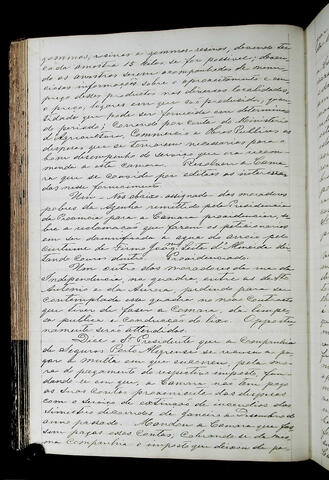 gommas, resinas e gommas-resinas, devendo ser
cada amostra 15 kilos se for possivel, deven-
do as amostras serem acompanhadas de minu-
ciosas informações sobre o aproveitamento e em-
prego desses productos nas diversas localidades,
o preço, lugares em que são produsidos, quan-
tidade que pode ser fornecida em determina-
do periodo; correndo por conta do Ministerio
d'Agricultura, Commercio e Obras Publicas as
despesas que se tornarem necessarias para o
bom desempenho do serviço que ora recom-
menda a esta Camara. Resolveu a Cama-
ra que se convide por editaes os interessa-
dos nesse fornecimento.
Um abaixo assignado dos moradores
do remettido pela Presidencia
da Provincia para a Camara providenciar, so-
bre a reclamação que fazem os peticionarios
em ser damnificada a agua de servir pelo
cortume de Firmo Leite d'Almeida dei-
tando couros dentro. Providenciado.
Um outro dos moradores da rua da
Independencia na quadra entre as de Sto.
Antonio e da Aurora, pedindo para ser
contemplada essa quadra no novo contracto
que tiver de faser a Camara, da limpe-
sa publica e conducção do lixo. Opportu-
namente serão attendidos.
Disse o Sr. Presidente que a Companhia
de Seguros Porto Alegrense se recusa a pa-
gar a multa em que incorreu pela mo-
ra do pagamento do respectivo imposto, fun-
dando-se em que, a Camara não tem pago
as suas contas provenientes das despesas
com o serviço de extincção de incendios dos
Semestres decorridos de Janeiro a Dezembro do
anno passado. Mandou a Camara que fos-
sem pagas essas contas, cobrando-se da mes-
ma Companhia o imposto que deixou de pa-